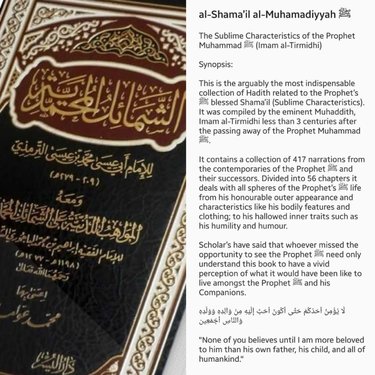 الشمائل المحمدية
للإمام أبي عيسى محمد بن عيسى الترمذي
٢٠٩ - ٢٧٩ هـ
ومعه
المواهب اللدنية على الشمائل
للإمام الفقيه إبراهيم بن محمد
رحمهما الله تعالى
اعتنى بهما
محمد
al-Shama'il al-Muhamadiyyah ﷺ
The Sublime Characteristics of the Prophet
Muhammad ﷺ (Imam al-Tirmidhi)
Synopsis:
This is the arguably the most indispensable
collection of Hadith related to the Prophet's
ﷺ blessed Shama'il (Sublime Characteristics).
It was compiled by the eminent Muhaddith,
Imam al-Tirmidhi less than 3 centuries after
the passing away of the Prophet Muhammad
ﷺ.
It contains a collection of 417 narrations from
the contemporaries of the Prophet ﷺ and
their successors. Divided into 56 chapters it
deals with all spheres of the Prophet's ﷺ life
from his honourable outer appearance and
characteristics like his bodily features and
clothing; to his hallowed inner traits such as
his humility and humour.
Scholar's have said that whoever missed the
opportunity to see the Prophet ﷺ need only
understand this book to have a vivid
perception of what it would have been like to
live amongst the Prophet ﷺ and his
Companions.
لَا يُؤْمِنُ أَحَدُكُمْ حَتَّى أَكُونَ أَحَبَّ إِلَيْهِ مِنْ وَالِدِهِ وَوَلَدِهِ
وَالنَّاسِ أَجْمَعِينَ
"None of you believes until I am more beloved
to him than his own father, his child, and all of
humankind."